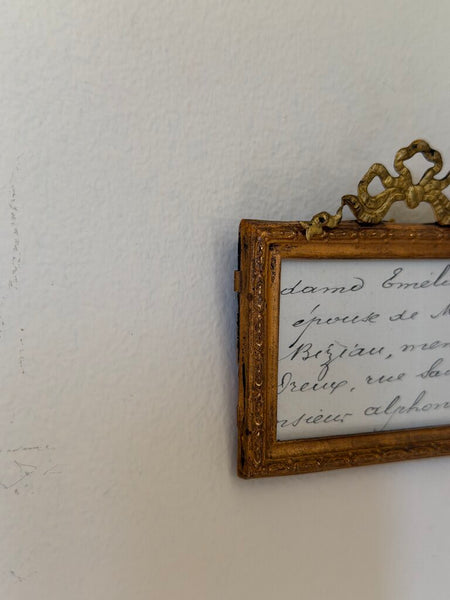 dame Emél
épouse de M
Bizian, men
Dreux, rue Sa
nsieur alphon